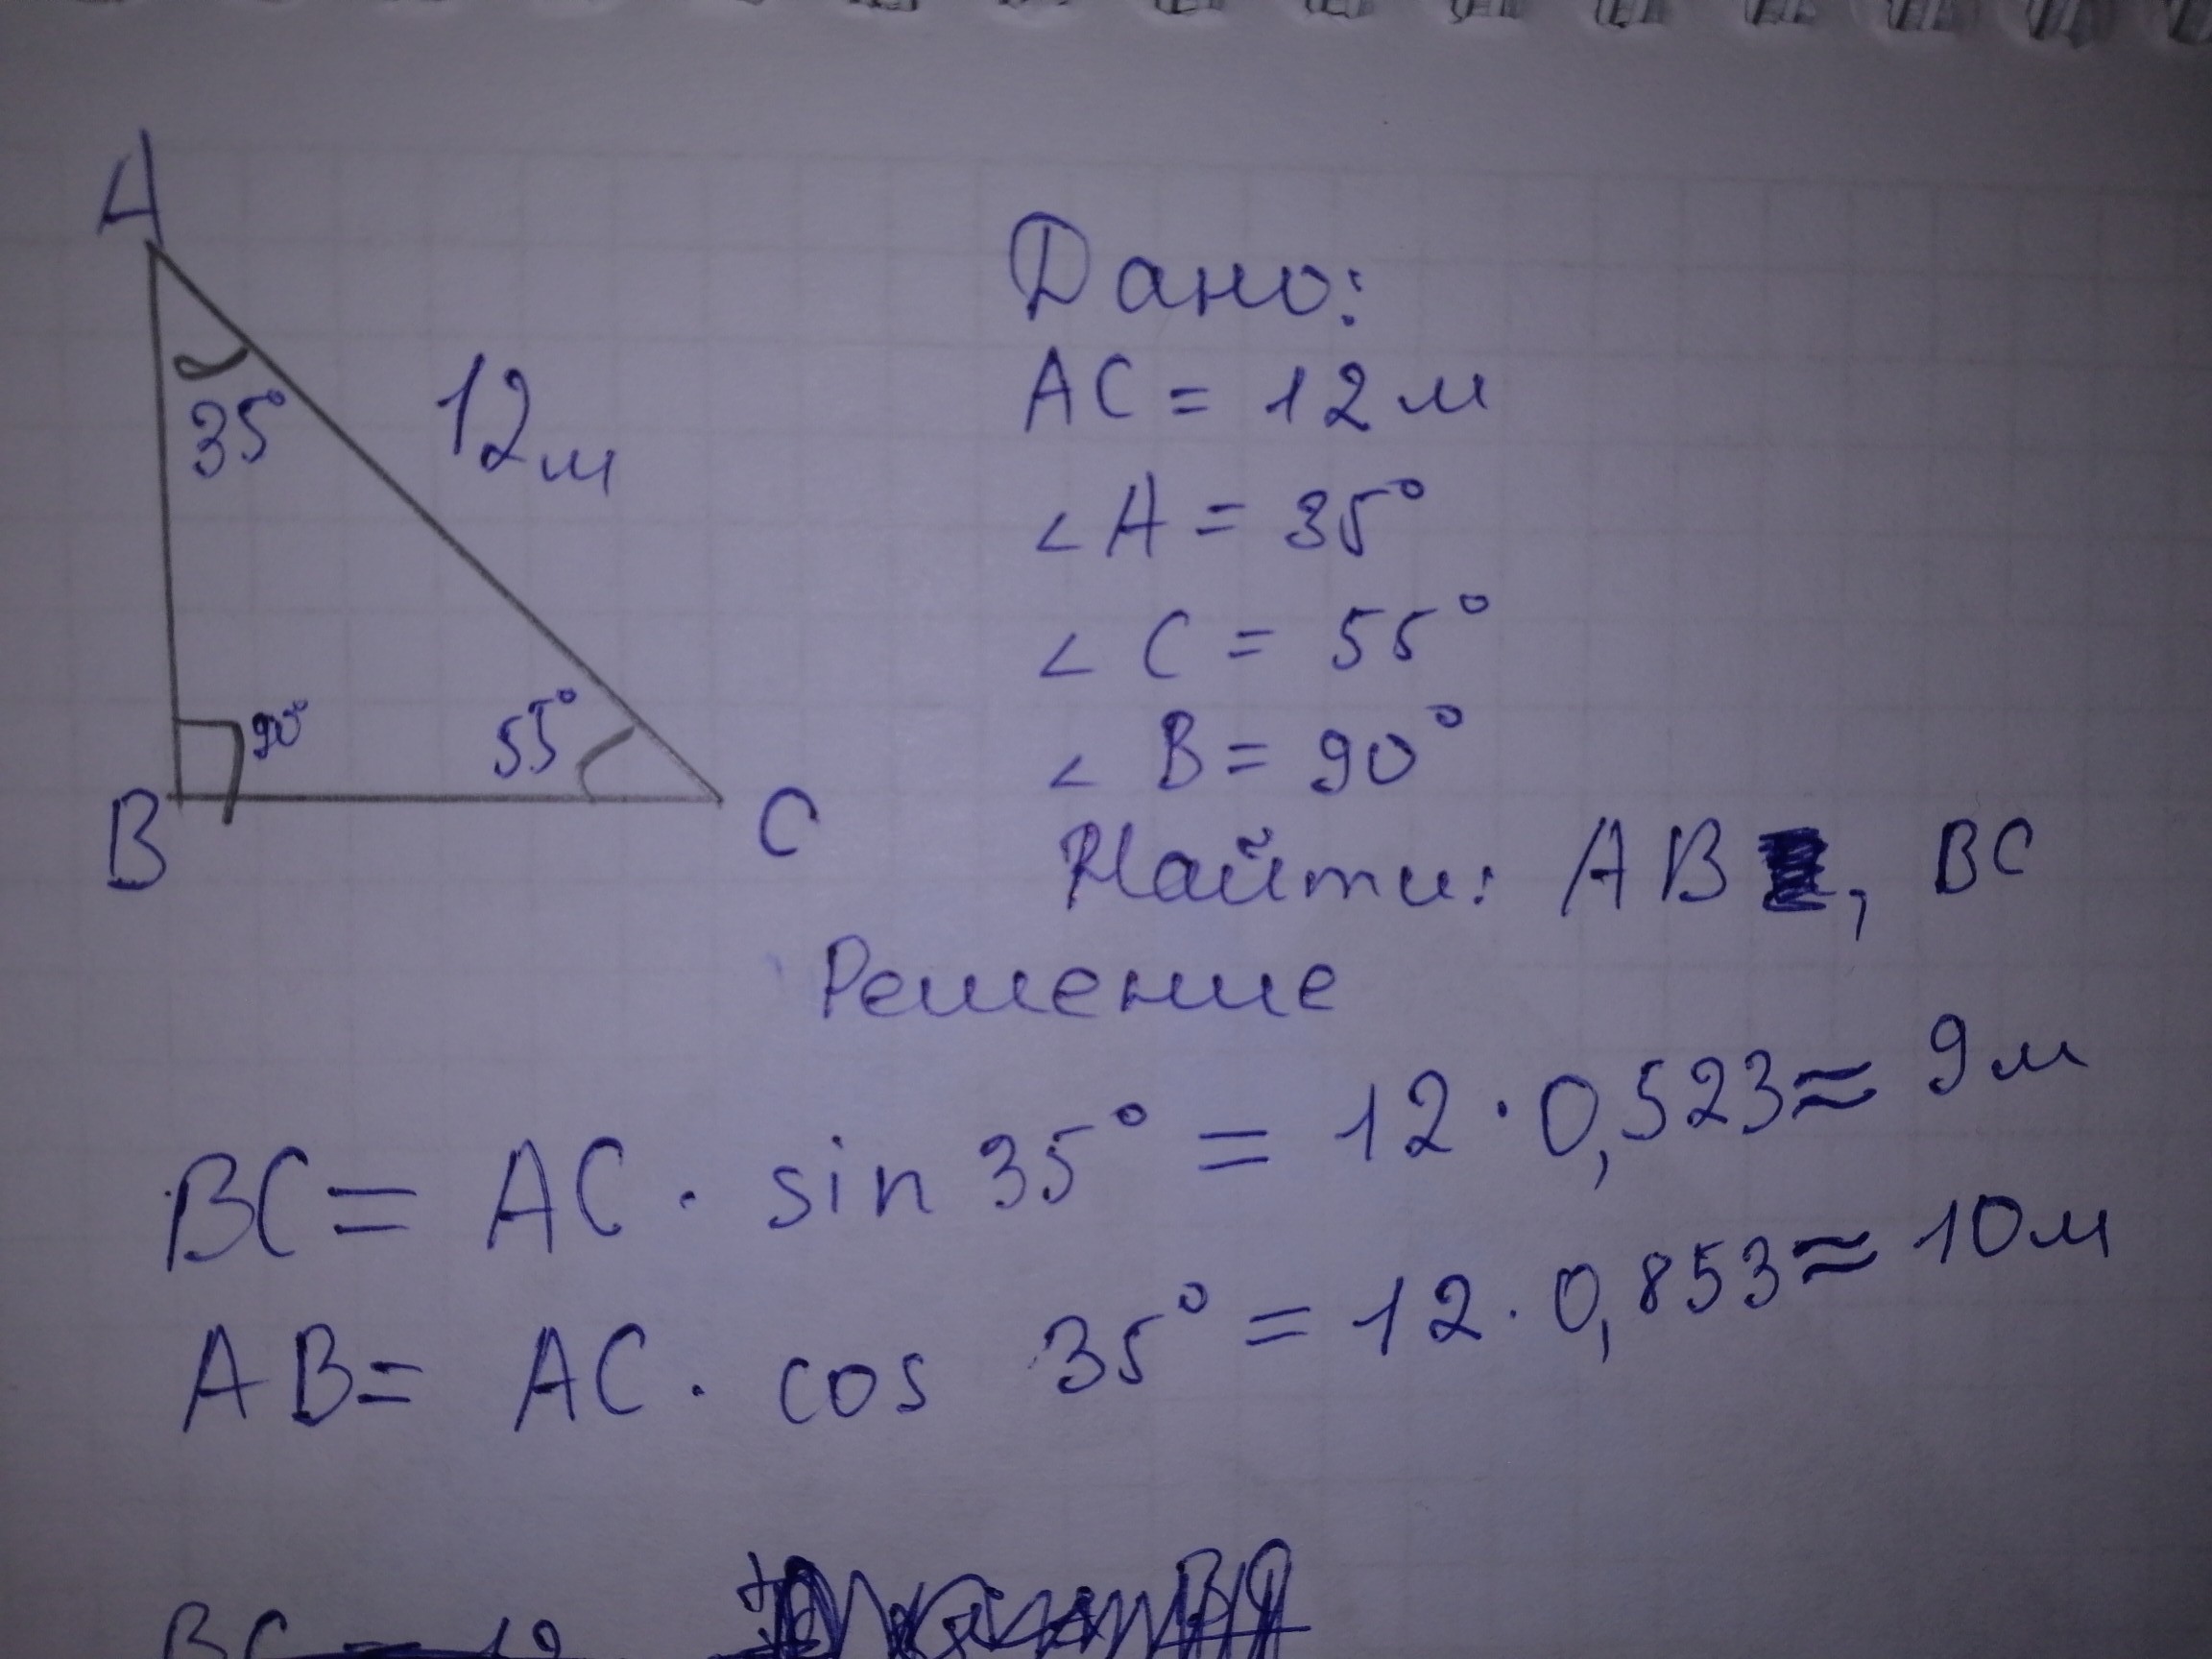 A
35°
12м
90°
55°
B
C
Дано:
AC = 12 м
∠ A = 35°
∠ C = 55°
∠ B = 90°
Найти: AB , BC
Решение
BC = AC · sin 35° = 12 · 0,523 ≈ 9 м
AB = AC · cos 35° = 12 · 0,853 ≈ 10 м